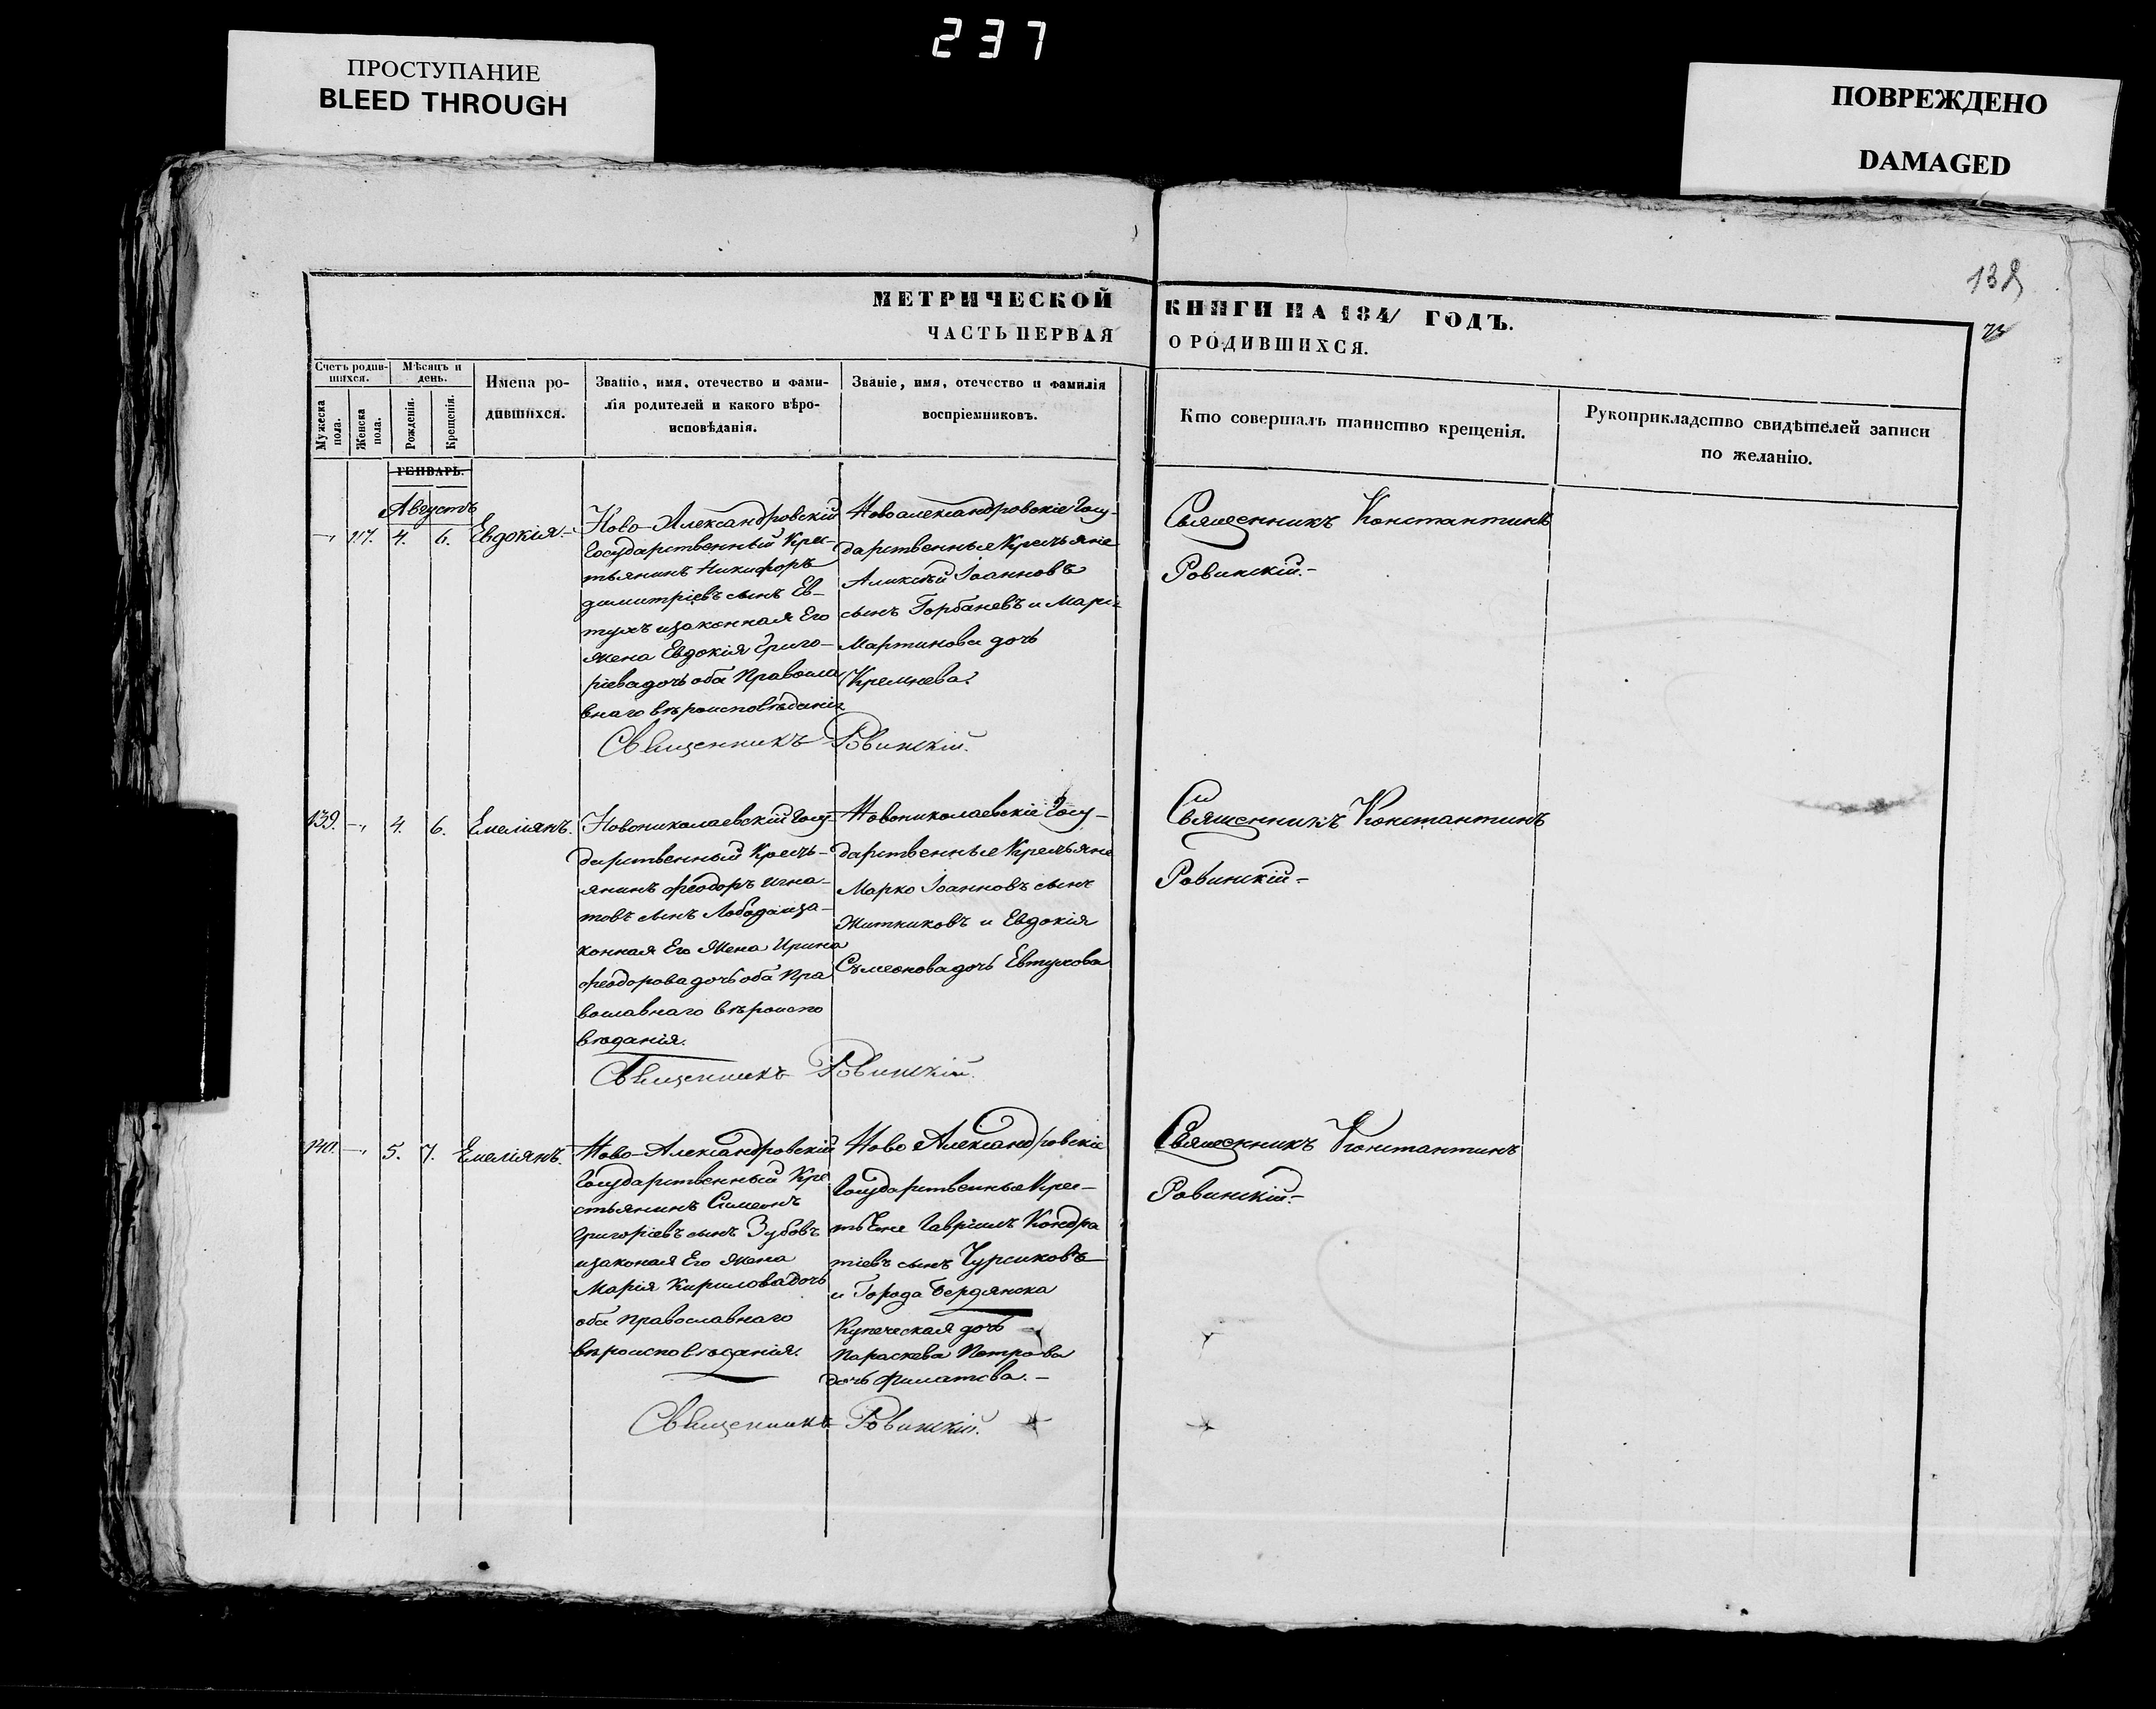 237
ПРОСТУПАНИЕ
BLEED THROUGH
ПОВРЕЖДЕНО
DAMAGED
138
МЕТРИЧЕСКОЙ КНИГИ НА 1841 ГОДЪ.
ЧАСТЬ ПЕРВАЯ О РОДИВШИХСЯ.
Счетъ родив-
шихся.
Мѣсяцъ и
день.
Мужеска
пола.
Женска
пола.
Рожденія.
Крещенія.
Имена ро-
дившихся.
Званіе, имя, отечество и фами-
лія родителей и какого вѣро-
исповѣданія.
Званіе, имя, отечество и фамилія
воспріемниковъ.
Кто совершалъ таинство крещенія.
Рукоприкладство свидѣтелей записи
по желанію.
ГЕНВАРЬ.
Августъ
117. 4. 6. Евдокія.
Ново-Александровскій
Государственный Крес-
тьянинъ Никифоръ
Димитріевъ сынъ Ев-
тухъ изаконная Его
жена Евдокія Григо-
ріевадочь оба Правосла
внаго вѣроисповѣданія
Новоалександровскіе Госу-
дарственные Крестьяне
Аликсѣй Іоанновъ
сынъ Горбаневъ и Марія
Мартинова дочь
Кремнева.
Священникъ Константинъ
Ровинскій.-
Священникъ Ровинскій.
139. 4. 6. Емеліянъ.
Новониколаевскій Госу-
дарственный Кресть-
янинъ Феодоръ Игна-
товъ сынъ Лобода иза-
конная Его Жена Ирина
Феодоровадочь оба Пра
вославнаго вѣроиспо
вѣданія.
Новониколаевскіе Госу-
дарственные Крестьяне
Марко Іоанновъ сынъ
Житниковъ и Евдокія
Сѵмеоновадочь Евтухова
Священникъ Константинъ
Ровинскій-
Священникъ Ровинскій.
140. 5. 7. Емеліянъ.
Ново-Александровскій
Государственный Кре
стьянинъ Симеонъ
Григоріевъ сынъ Зубовъ
изаконая Его жена
Марія Кириловадочь
оба Православнаго
вѣроисповѣданія.
Ново Александровскіе
Государственные Крес-
тьѣне Гавріилъ Кондра
тіевъ сынъ Чурсиковъ
и Города Бердянска
Купеческая дочь
Параскева Петрова
дочь Филатова.-
Священникъ Константинъ
Ровинскій-
Священникъ Ровинскій.